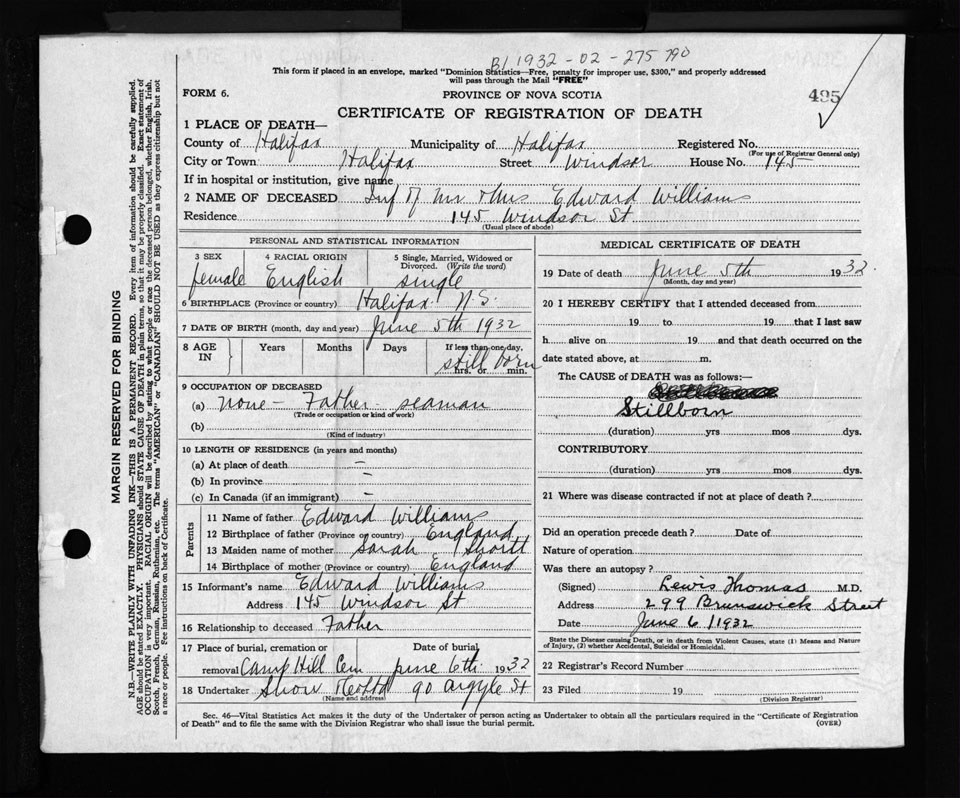 B/ 1932 - 02 - 275 790
This form if placed in an envelope, marked "Dominion Statistics—Free, penalty for improper use, $300," and properly addressed
will pass through the Mail "FREE"
FORM 6. PROVINCE OF NOVA SCOTIA 495
CERTIFICATE OF REGISTRATION OF DEATH
1 PLACE OF DEATH—
County of Halifax Municipality of Halifax Registered No.
(For use of Registrar General only)
City or Town Halifax Street Windsor House No. 145
If in hospital or institution, give name
2 NAME OF DECEASED Inf of Mr & Mrs Edward Williams
Residence 145 Windsor St
(Usual place of abode)
PERSONAL AND STATISTICAL INFORMATION
3 SEX 4 RACIAL ORIGIN 5 Single, Married, Widowed or
Divorced. (Write the word)
female English single
6 BIRTHPLACE (Province or country) Halifax N.S.
7 DATE OF BIRTH (month, day and year) June 5th 1932
8 AGE IN Years Months Days If less than one day,
still born
hrs. or min.
9 OCCUPATION OF DECEASED
(a) none - Father - seaman
(Trade or occupation or kind of work)
(b)
(Kind of industry)
10 LENGTH OF RESIDENCE (in years and months)
(a) At place of death —
(b) In province —
(c) In Canada (if an immigrant) —
Parents
11 Name of father Edward Williams
12 Birthplace of father (Province or country) England
13 Maiden name of mother Sarah Shortt
14 Birthplace of mother (Province or country) England
15 Informant's name Edward Williams
Address 145 Windsor St
16 Relationship to deceased Father
17 Place of burial, cremation or Date of burial
removal Camp Hill Cem June 6th 1932
18 Undertaker Snow & Co Ltd 90 Argyle St
(Name and address)
MEDICAL CERTIFICATE OF DEATH
19 Date of death June 5th 1932.
(Month, day and year)
20 I HEREBY CERTIFY that I attended deceased from
19 to 19 that I last saw
h alive on 19 and that death occurred on the
date stated above, at m.
The CAUSE of DEATH was as follows:—
Stillborn
(duration) yrs mos dys.
CONTRIBUTORY
(duration) yrs mos dys.
21 Where was disease contracted if not at place of death?
Did an operation precede death? Date of
Nature of operation
Was there an autopsy?
(Signed) Lewis Thomas M.D.
Address 299 Brunswick Street
Date June 6/1932
State the Disease causing Death, or in death from Violent Causes, state (1) Means and Nature
of Injury, (2) whether Accidental, Suicidal or Homicidal.
22 Registrar's Record Number
23 Filed 19
(Division Registrar)
Sec. 46—Vital Statistics Act makes it the duty of the Undertaker or person acting as Undertaker to obtain all the particulars required in the "Certificate of Registration
of Death" and to file the same with the Division Registrar who shall issue the burial permit. (OVER)
MARGIN RESERVED FOR BINDING
N.B.—WRITE PLAINLY WITH UNFADING INK—THIS IS A PERMANENT RECORD. Every item of information should be carefully supplied.
AGE should be stated EXACTLY. PHYSICIANS should STATE CAUSE OF DEATH in plain terms, so that it may be properly classified. Exact statement of
OCCUPATION is very important. RACIAL ORIGIN will be described by stating to what people or race the deceased person belonged, whether English, Irish,
Scotch, French, German, Russian, Ruthenian, etc. The terms "AMERICAN" or "CANADIAN" SHOULD NOT BE USED as they express citizenship but not
a race or people. See instructions on back of Certificate.